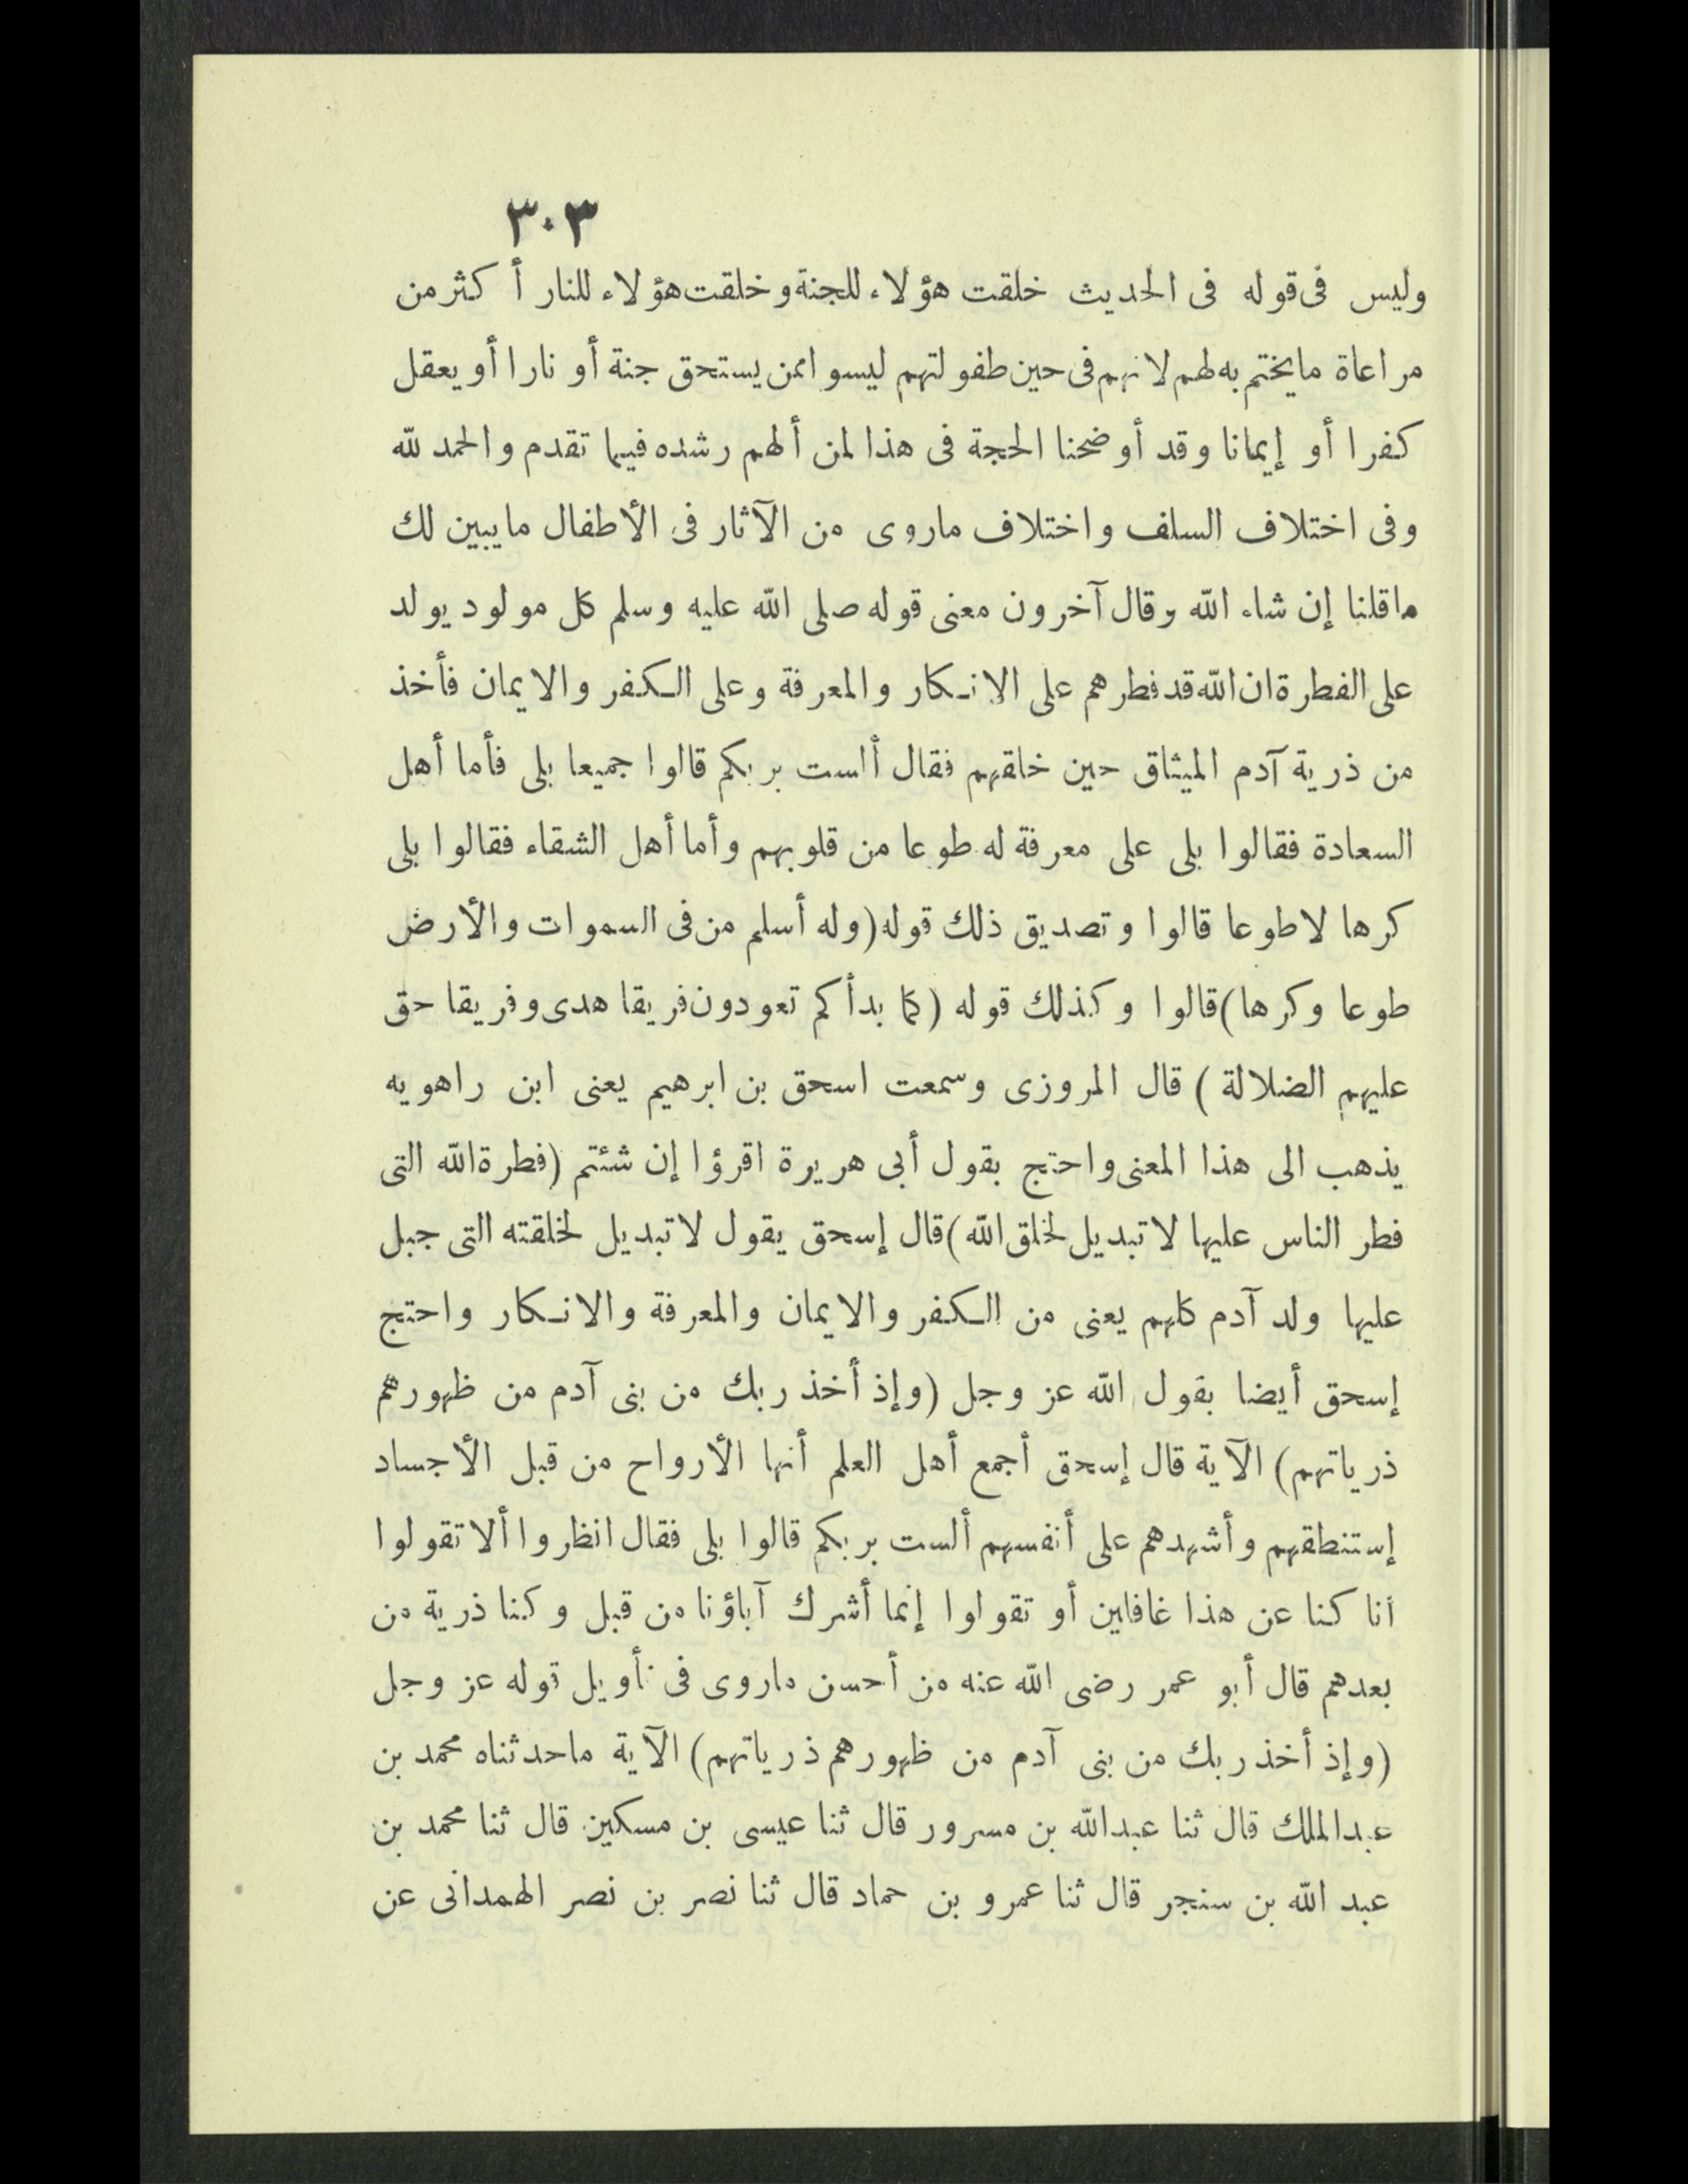 ٣٠٣
وليس فى قوله فى الحديث خلقت هؤلاء للجنة وخلقت هؤلاء للنار أكثر من
مراعاة ما يختم به لهم لانهم فى حين طفولتهم ليسوا ممن يستحق جنة أو نارا أو يعقل
كفرا أو إيمانا وقد أوضحنا الحجة فى هذا لمن ألهم رشده فيما تقدم والحمد لله
وفى اختلاف السلف واختلاف ماروى من الآثار فى الأطفال ما يبين لك
ماقلنا إن شاء الله وقال آخرون معنى قوله صلى الله عليه وسلم كل مولود يولد
على الفطرة ان الله قد فطرهم على الانكار والمعرفة وعلى الكفر والايمان فأخذ
من ذرية آدم الميثاق حين خلقهم فقال ألست بربكم قالوا جميعا بلى فأما أهل
السعادة فقالوا بلى على معرفة له طوعا من قلوبهم وأما أهل الشقاء فقالوا بلى
كرها لاطوعا قالوا وتصديق ذلك قوله (وله أسلم من فى السموات والأرض
طوعا وكرها) قالوا وكذلك قوله (كما بدأكم تعودون فريقا هدى وفريقا حق
عليهم الضلالة) قال المروزى وسمعت اسحق بن ابرهيم يعنى ابن راهويه
يذهب الى هذا المعنى واحتج بقول أبى هريرة اقرؤا إن شئتم (فطرة الله التى
فطر الناس عليها لا تبديل لخلق الله) قال إسحق يقول لا تبديل لخلقته التى جبل
عليها ولد آدم كلهم يعنى من الكفر والايمان والمعرفة والانكار واحتج
إسحق أيضا بقول الله عز وجل (وإذ أخذ ربك من بنى آدم من ظهورهم
ذرياتهم) الآية قال إسحق أجمع أهل العلم أنها الأرواح من قبل الأجساد
إستنطقهم وأشهدهم على أنفسهم ألست بربكم قالوا بلى فقال انظروا ألا تقولوا
انا كنا عن هذا غافلين أو تقولوا إنما أشرك آباؤنا من قبل وكنا ذرية من
بعدهم قال أبو عمر رضى الله عنه من أحسن ماروى فى تأويل قوله عز وجل
(وإذ أخذ ربك من بنى آدم من ظهورهم ذرياتهم) الآية ماحدثناه محمد بن
عبد الملك قال ثنا عبد الله بن مسرور قال ثنا عيسى بن مسكين قال ثنا محمد بن
عبد الله بن سنجر قال ثنا عمرو بن حماد قال ثنا نصر بن نصر الهمدانى عن